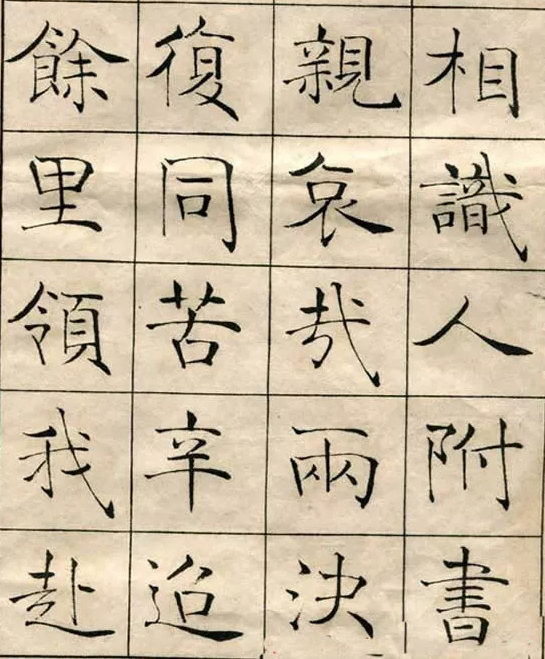 相識人附書
親哀哉兩決
復同苦辛迢
餘里領我赴